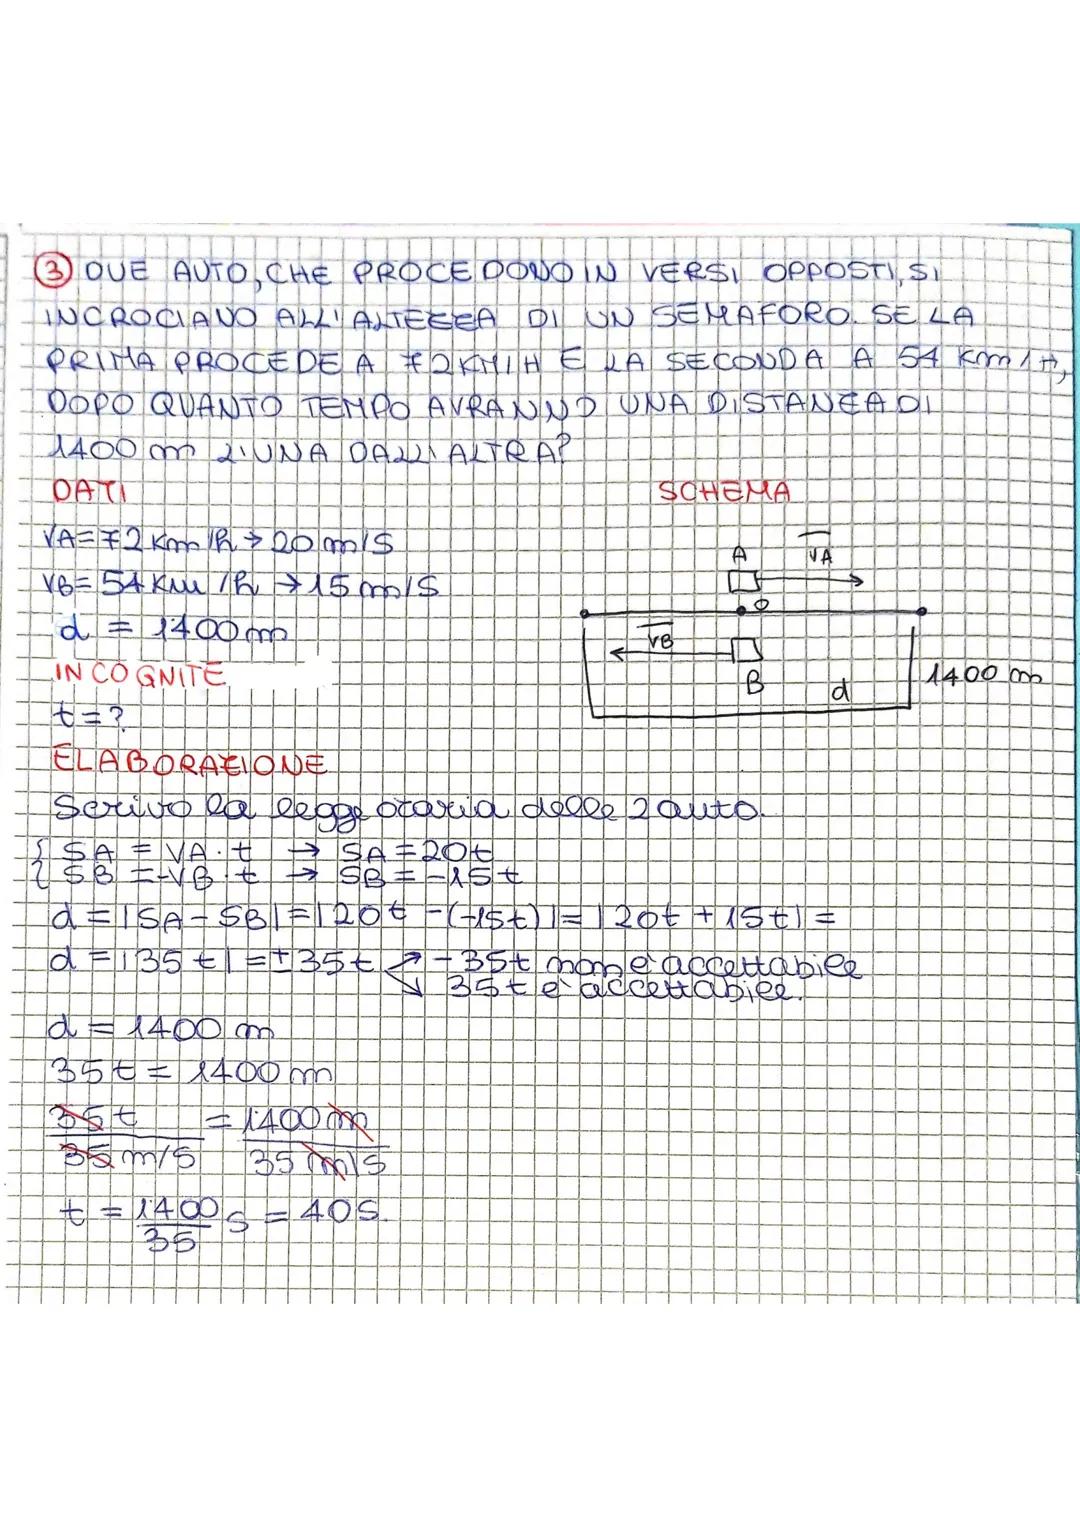 3 DUE AUTO, CHE PROCEDONO IN VERSI OPPOSTI, SI
INCROCIANO ALL'ALTEZZA DI UN SEMAFORO. SE LA
PRIMA PROCEDE A 72 KM/H E LA SECONDA A 54 Km/H,
DOPO QUANTO TEMPO AVRANNO UNA DISTANZA DI
1400 m L'UNA DALL'ALTRA?
DATI
VA = 72 Km/h → 20 m/s
VB = 54 Km/h → 15 m/s
d = 1400 m
INCOGNITE
t = ?
SCHEMA
A VA
O
VB
B d 1400 m
ELABORAZIONE
Scrivo la legge oraria delle 2 auto.
{ SA = VA · t → SA = 20t
{ SB = -VB · t → SB = -15t
d = |SA - SB| = |20t - (-15t)| = |20t + 15t| =
d = |35t| = ±35t ↗ -35t non è accettabile
↘ 35t è accettabile.
d = 1400 m
35t = 1400 m
35t = 1400 m
35 m/s 35 m/s
t = 1400 s = 40 s.
35